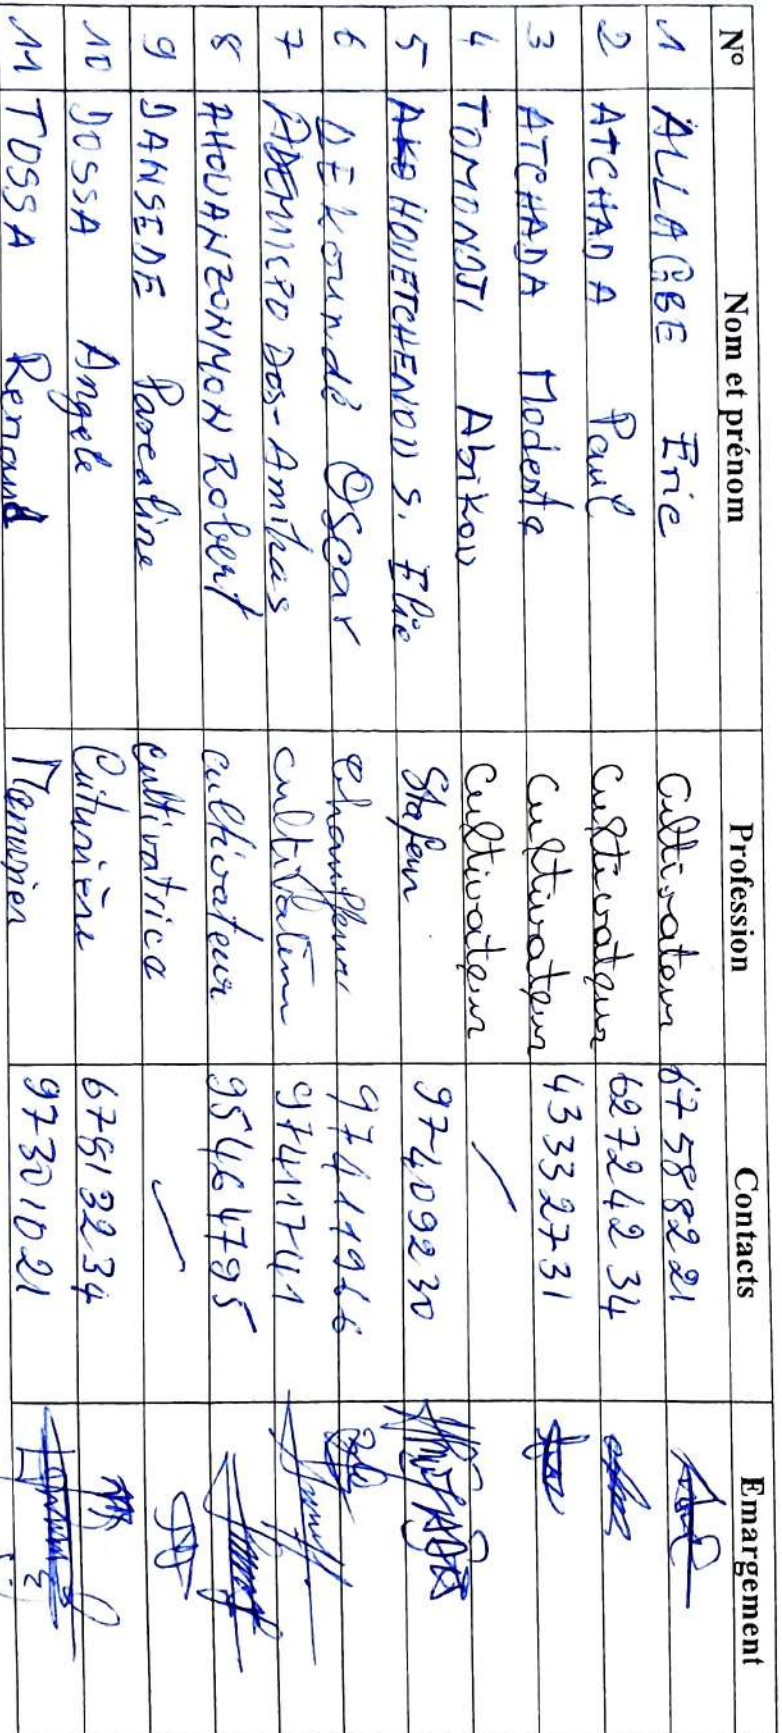 N° Nom et prénom Profession Contacts Emargement
1 ALLAGBE Eric Cultivateur 67588221
2 ATCHADA Paul Cultivateur 62724234
3 ATCHADA Modeste Cultivateur 43332731
4 TOMONDJI Abikou Cultivateur /
5 HOUETCHENOU S. Elie 97409230
6 DEKoundé Oscar chauffeur 97411966
7 Dos-Amihas cultivateur 97411741
8 AHOUANZONNON Robert cultivateur 95464795
9 DANSEDE Pascaline cultivatrice /
10 DOSSA Angèle Couturière 67513234
11 TOSSA Renaud Menuisier 97301021